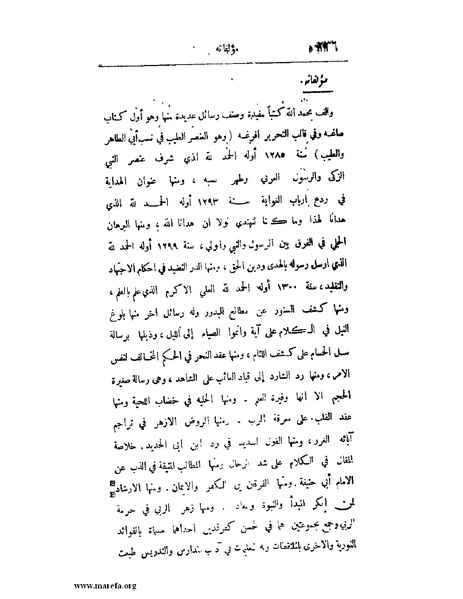 ٣٣٦ مؤلفاته
مؤلفاته.
والف بحمد الله كتباً مفيدة وصنف رسائل عديدة منها وهو أول كتاب
صافه وفي قالب التحرير افرغه ( وهو العنصر الطيب في نسب أبي الطاهر
والطيب ) سنة ١٢٨٥ أوله الحمد لله الذي شرف عنصر النبي
الزكى والرسول العربي وطهر نسبه ، ومنها عنوان الهداية
في ردع أرباب الغواية سنة ١٢٩٣ أوله الحمد لله الذي
هدانا لهذا وما كنا لنهتدي لولا ان هدانا الله ، ومنها البرهان
الجلي في الفرق بين الرسول والنبي والولي ، سنة ١٢٩٩ أوله الحمد لله
الذي أرسل رسوله بالهدى ودين الحق ، ومنها الدر النضيد في احكام الاجتهاد
والتقليد ، سنة ١٣٠٠ أوله الحمد لله العلي الاكرم الذي علم بالعلم ،
ومنها كشف الستور عن مطالع البدور وله رسائل اخر منها بلوغ
النيل في الكلام على آية واتموا الصيام إلى الليل ، وذيلها برسالة
سل الحسام على كشف اللثام ، ومنها عقد النحر في الحكم المخالف لنفس
الامر ، ومنها رد الشارد إلى قياد الغائب على الشاهد ، وهي رسالة صغيرة
الحجم الا انها وفيرة العلم . ومنها الحليه في خضاب اللحية ومنها
عقد القلب . على معرفة الرب . ومنها الروض الازهر في تراجم
آبائه الغرر ، ومنها القول السديد في رد ابن ابي الحديد . خلاصة
المقال في الكلام على شد الرحال ومنها المطالب المنيفة في الذب عن
الامام أبي حنيفة . ومنها الفرقدين بين الكفر والايمان . ومنها الارشاد
لمن انكر المبدأ والنبوة والمعاد . ومنها زهر الربى في حرمة
الربى وجمع مجموعتين هما في الحسن كفرقدين احداهما مسماة بالفوائد
النورية والاخرى بالملتقطات وله في المدارس والتدريس طبعت
www.marefa.org